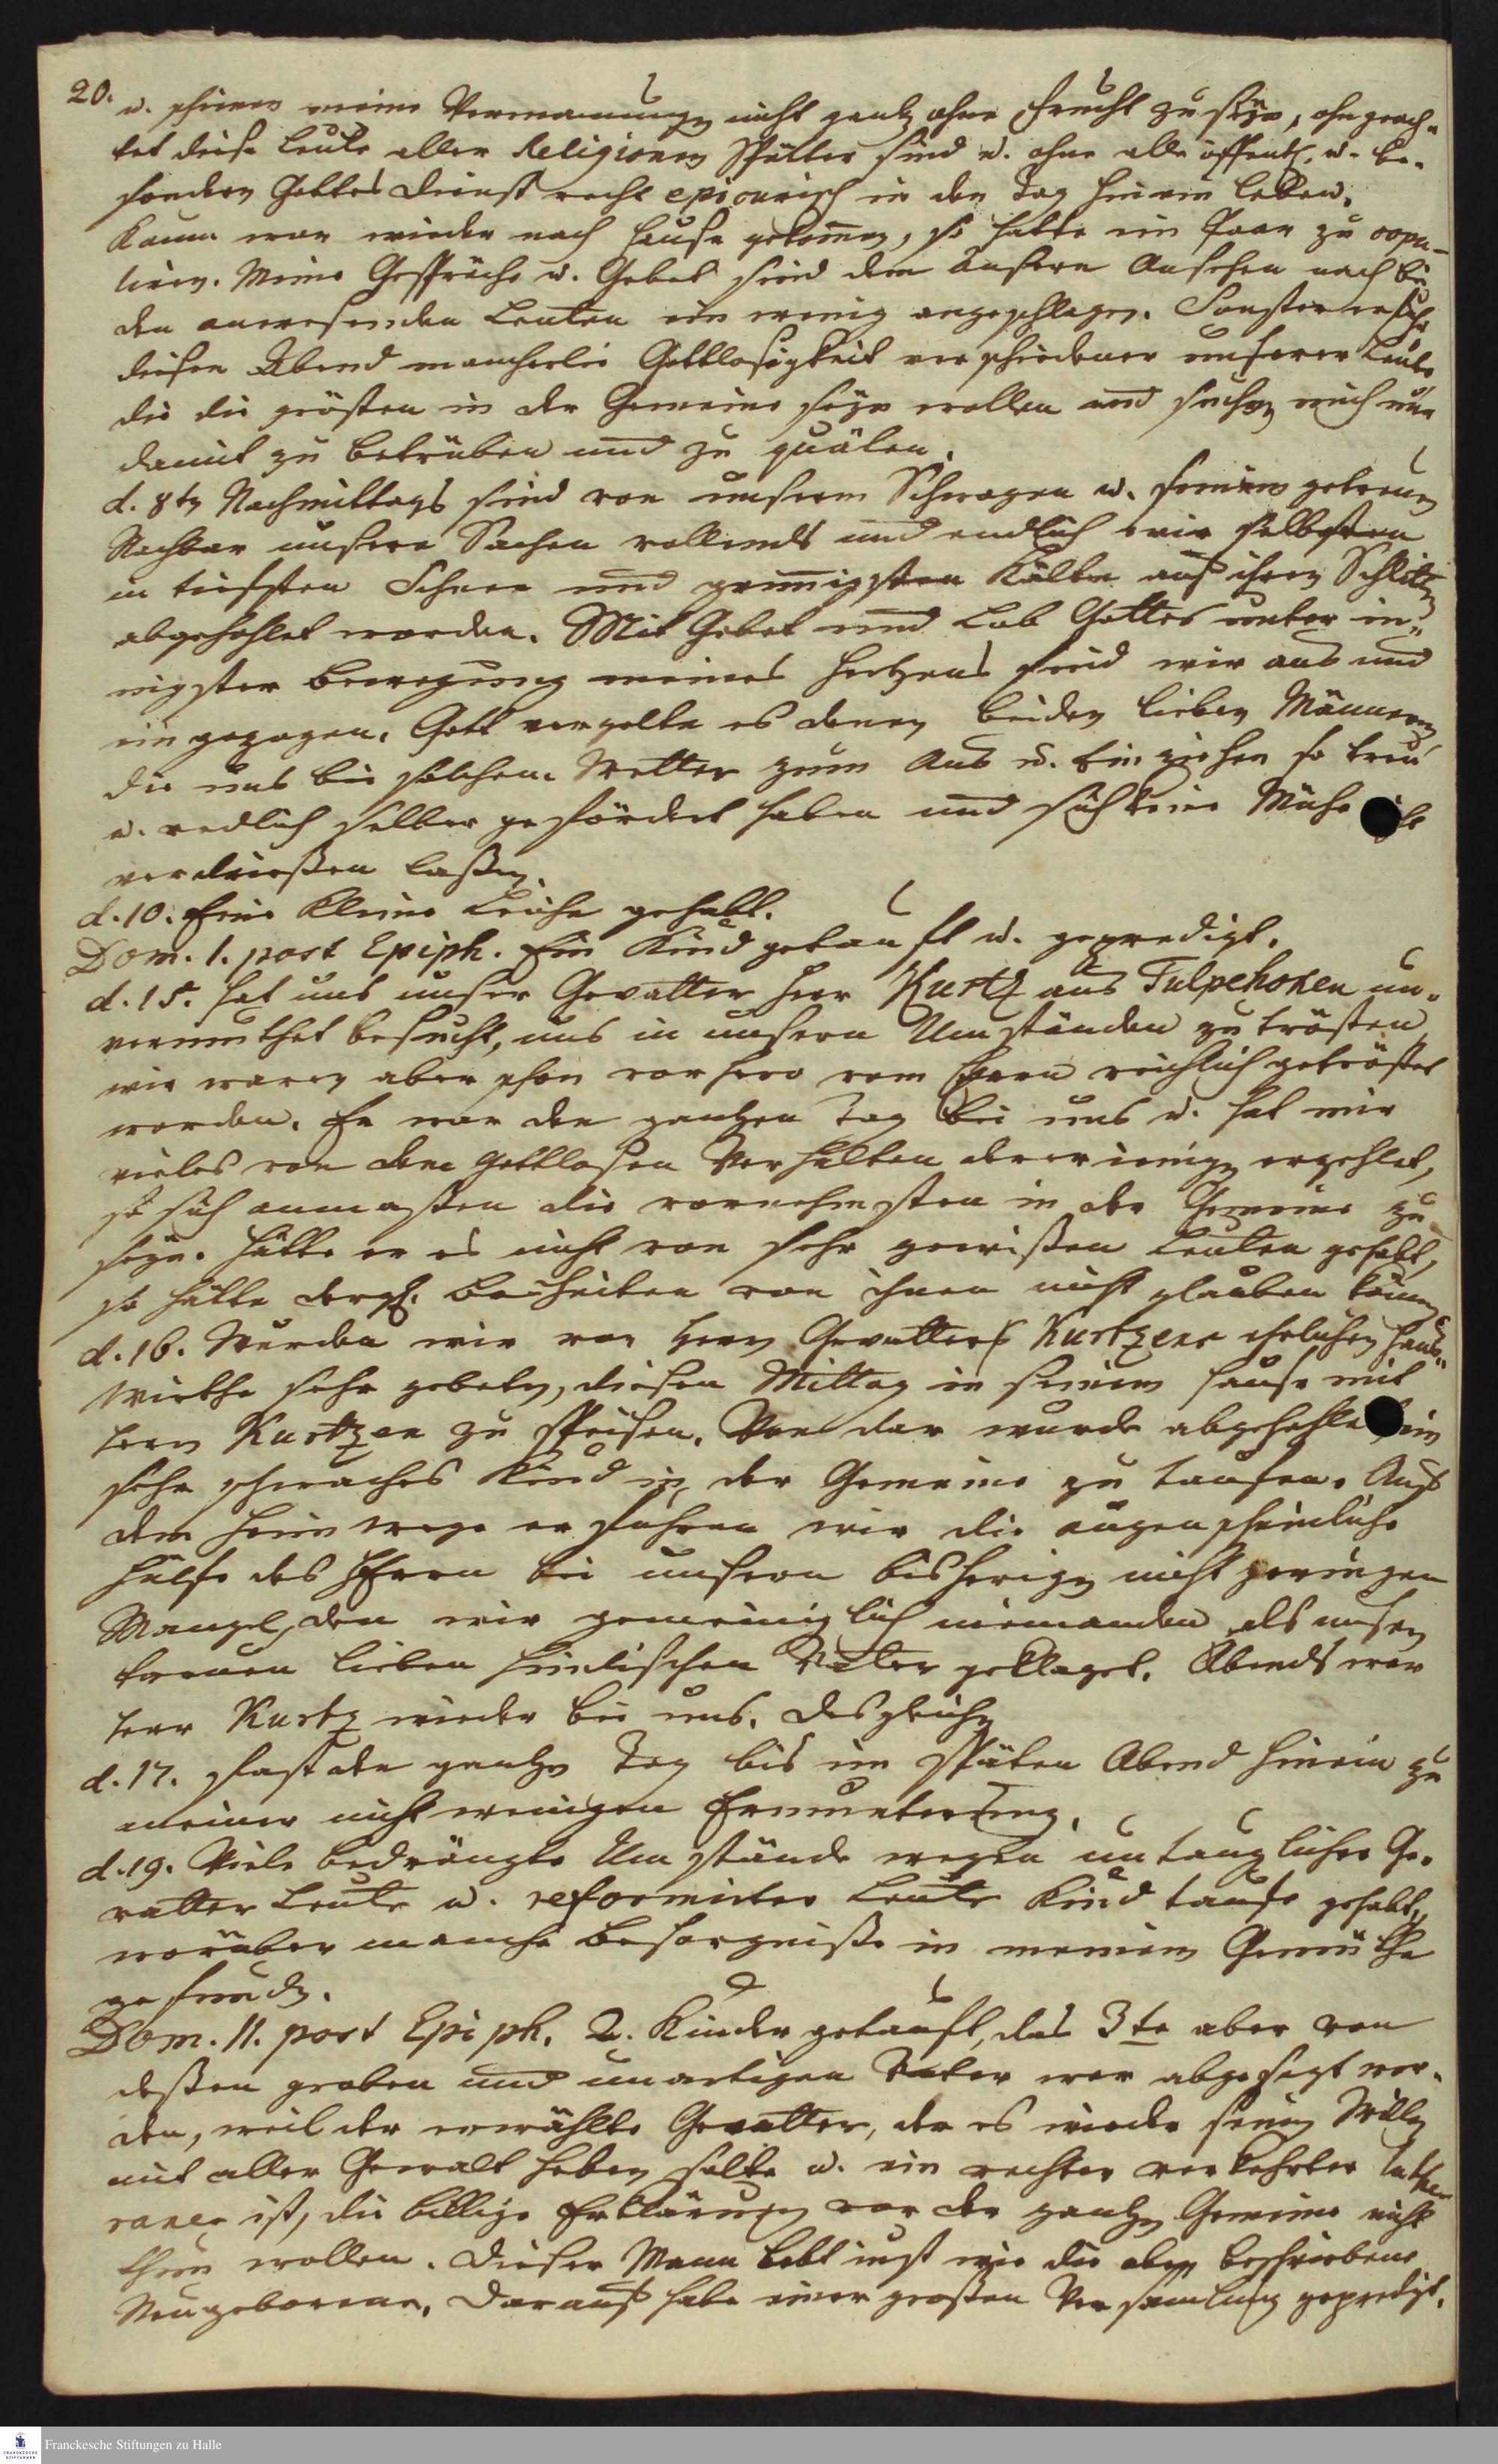 20.
u. schienen meine Vermanungen nicht gantz ohne Frucht zu seyn, ohngeach-
tet diese Leute aller Religionen Spötter sind u. ohne alle öffentl. u. be-
sondern Gottes dienst recht epicurisch in den Tag hinein leben.
Kaum war wieder nach Hause gekommen, so hatte ein Paar zu copu-
liren. Meine Gespräche u. Gebet sind dem äusern Ansehen nach bei
den anwesenden Leuten ein wenig angeschlagen. Sonsten erfuhr
diesen Abend mancherlei Gottlosigkeit verschiedener unserer Leute
die die grösten in der Gemeine seyn wollen und suchen mich nur
damit zu betrüben und zu quälen.
d. 8ten Nachmittags sind von unserm Schwagen u. seinem getreuen
Nachbar unsere Sachen vollends und endlich wir selbsten
in tiefsten Schnee und grimmigsten Kälte auf ihren Schlitten
abgehohlet worden. Mit Gebet und Lob Gottes unter in-
nigster Bewegung meines Hertzens sind wir aus und
eingezogen. Gott vergelte es denen beiden lieben Männern,
die uns bei solchem Wetter zum Aus u. Einziehen so treu
u. redlich selber gefördert haben und sich keine Mühe
verdriessen lassen.
d. 10. Eine kleine Leiche gehabt.
Dom. 1. post Epiph. Ein Kind getauft u. geprediget.
d. 15. hat uns unser Gevatter Herr Kurtz aus Tulpehoken un-
vermuthet besucht, uns in unsern Umständen zu trösten,
wir waren aber schon vorhero vom Herrn reichlich getröstet
worden. Er war den gantzen Tag bei uns u. hat mir
vieles von dem gottlosen Verhalten dererienigen erzehlet,
so sich anmassen die vornehmsten in der Gemeine zu
seyn. Hätte er es nicht von sehr gewissen Leuten gehabt,
so hätte dergl. Bosheiten von ihnen nicht glauben können.
d. 16. Wurden wir von Herrn Gevatters Kurtzens ehrlichen Haus-
Wirthe sehr gebeten, diesen Mittag in seinem Hause mit
Herrn Kurtzen zu speisen. Von dar wurde abgehohlet ein
sehr schwaches Kind in der Gemeine zu taufen. Auf
dem Heimwege erfuhren wir die augenscheinliche
Hülfe des HErrn bei unsern bisherigen nicht geringen
Mangel, den wir gemeiniglich niemanden als unsern
treuen lieben himlischen Vater geklaget. Abends war
Herr Kurtz wieder bei uns. Desgleichen
d. 17. fast den gantzen Tag bis im späten Abend hinein zu
meiner nicht wenigen Ermunterung.
d. 19. Viele bedrängte Umstände wegen untauglicher Ge-
vatter Leute u. reformirter Leute Kind taufe gehabt,
worüber manche Besorgnisse in meinem Gemüthe
gefunden.
Dom. 11. post Epiph. 2. Kinder getauft, das 3te aber von
dessen groben und unartigen Vater war abgesagt wor-
den, weil der erwählte Gevatter, der es wieder seinen Willen
mit aller Gewalt heben solte u. ein rechter verkehrter Luthe-
raner ist, die billige Erklärung vor der gantzen Gemeine nicht
thun wollen. Dieser Mann lebt iust wie die oben beschriebene
Neugeborene. Darauf habe einer grossen Versamlung geprediget.
Franckesche Stiftungen zu Halle